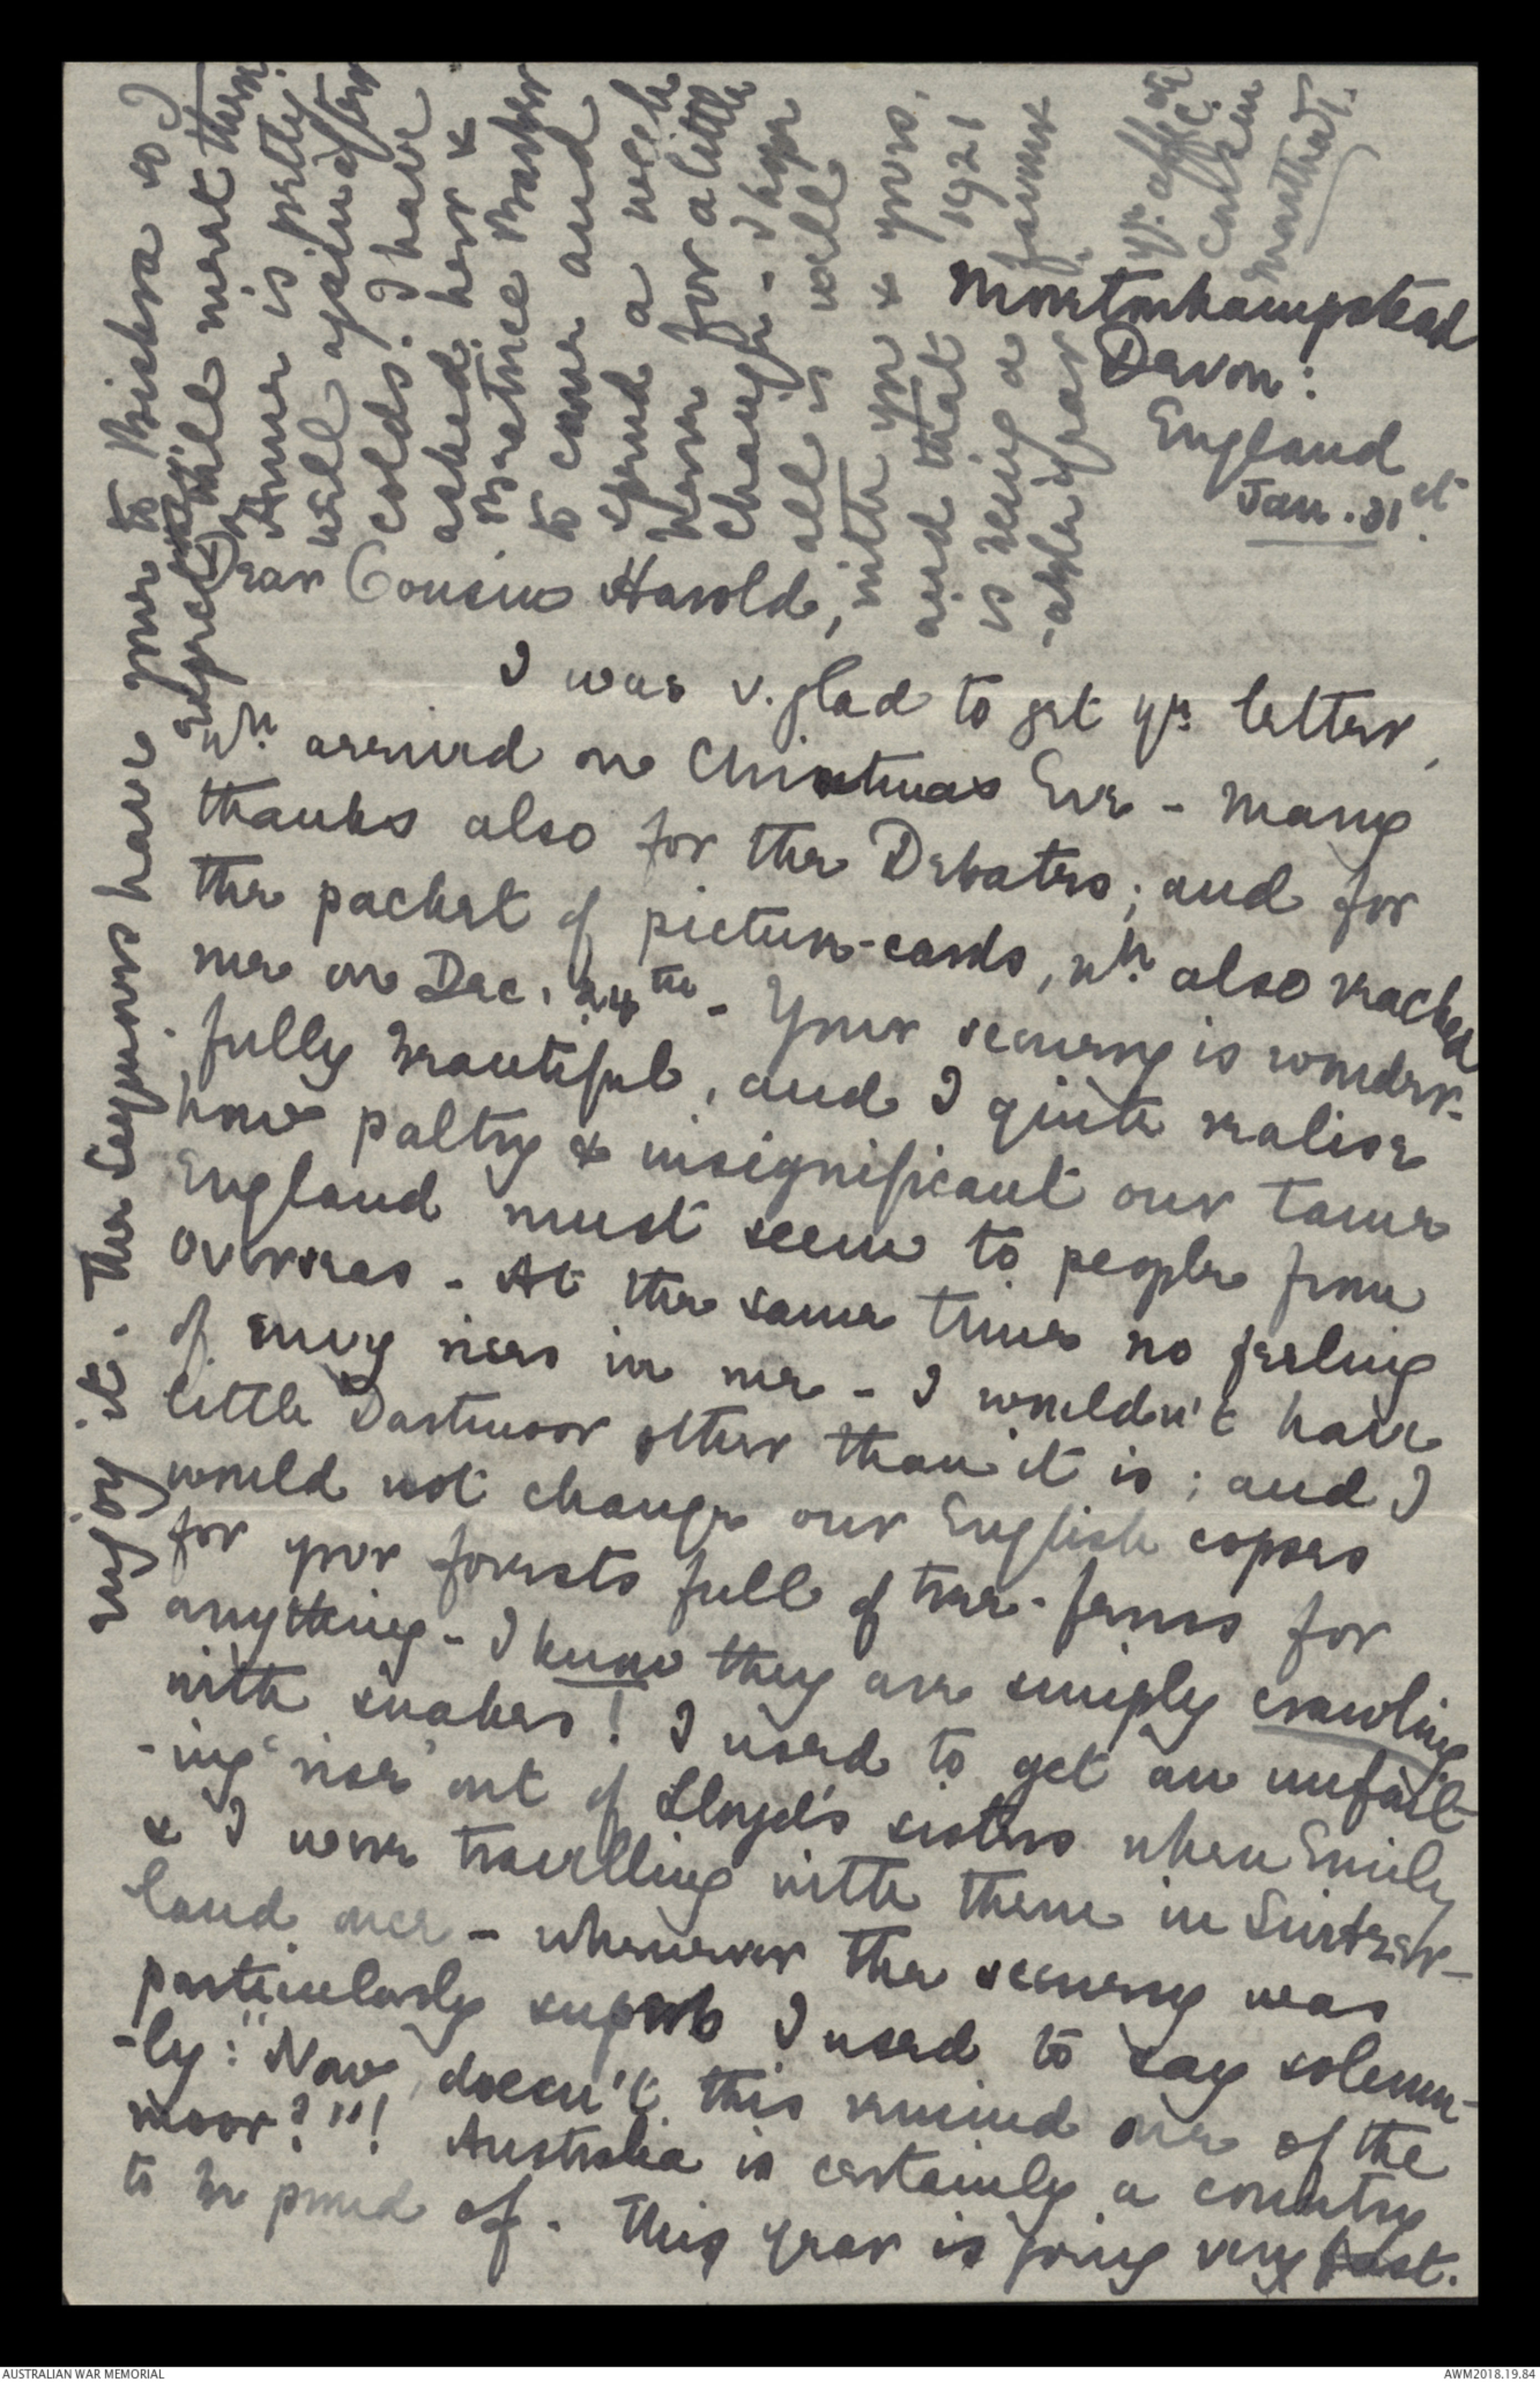 Moretonhampstead
Devon:
England
Jan. 31st.
Dear Cousin Harold,
I was v. glad to get yr. letter,
wh. arrived on Christmas Eve - Many
thanks also for the Debates; and for
the packet of picture-cards, wh. also reached
me on Dec. 24th - Your scenery is wonder-
fully beautiful, and I quite realise
how paltry & insignificant our tame
England must seem to people from
Overseas - At the same time no feeling
of envy rises in me - I wouldn't have
little Dartmoor other than it is; and I
would not change our English copses
for your forests full of tree-ferns for
anything - I know they are simply crawling
with snakes! I used to get an unfail-
-ing 'rise' out of Lloyd's sisters when Emily
& I were travelling with them in Switzer-
land once - whenever the scenery was
particularly superb I used to say solemn-
-ly: "Now, doesn't this remind one of the
moor?"! Australia is certainly a country
to be proud of. This year is going very fast.
enjoy it. The Seymours have gone to
expect they'll meet them.
Anne is pretty
well again after
colds. I have
asked her &
Beatrice
to come and
spend a week
here for a little
change. I hope
all is well
with you & yours,
and that 1921
is being a favour-
-able year.
yr. affec:
Cousin